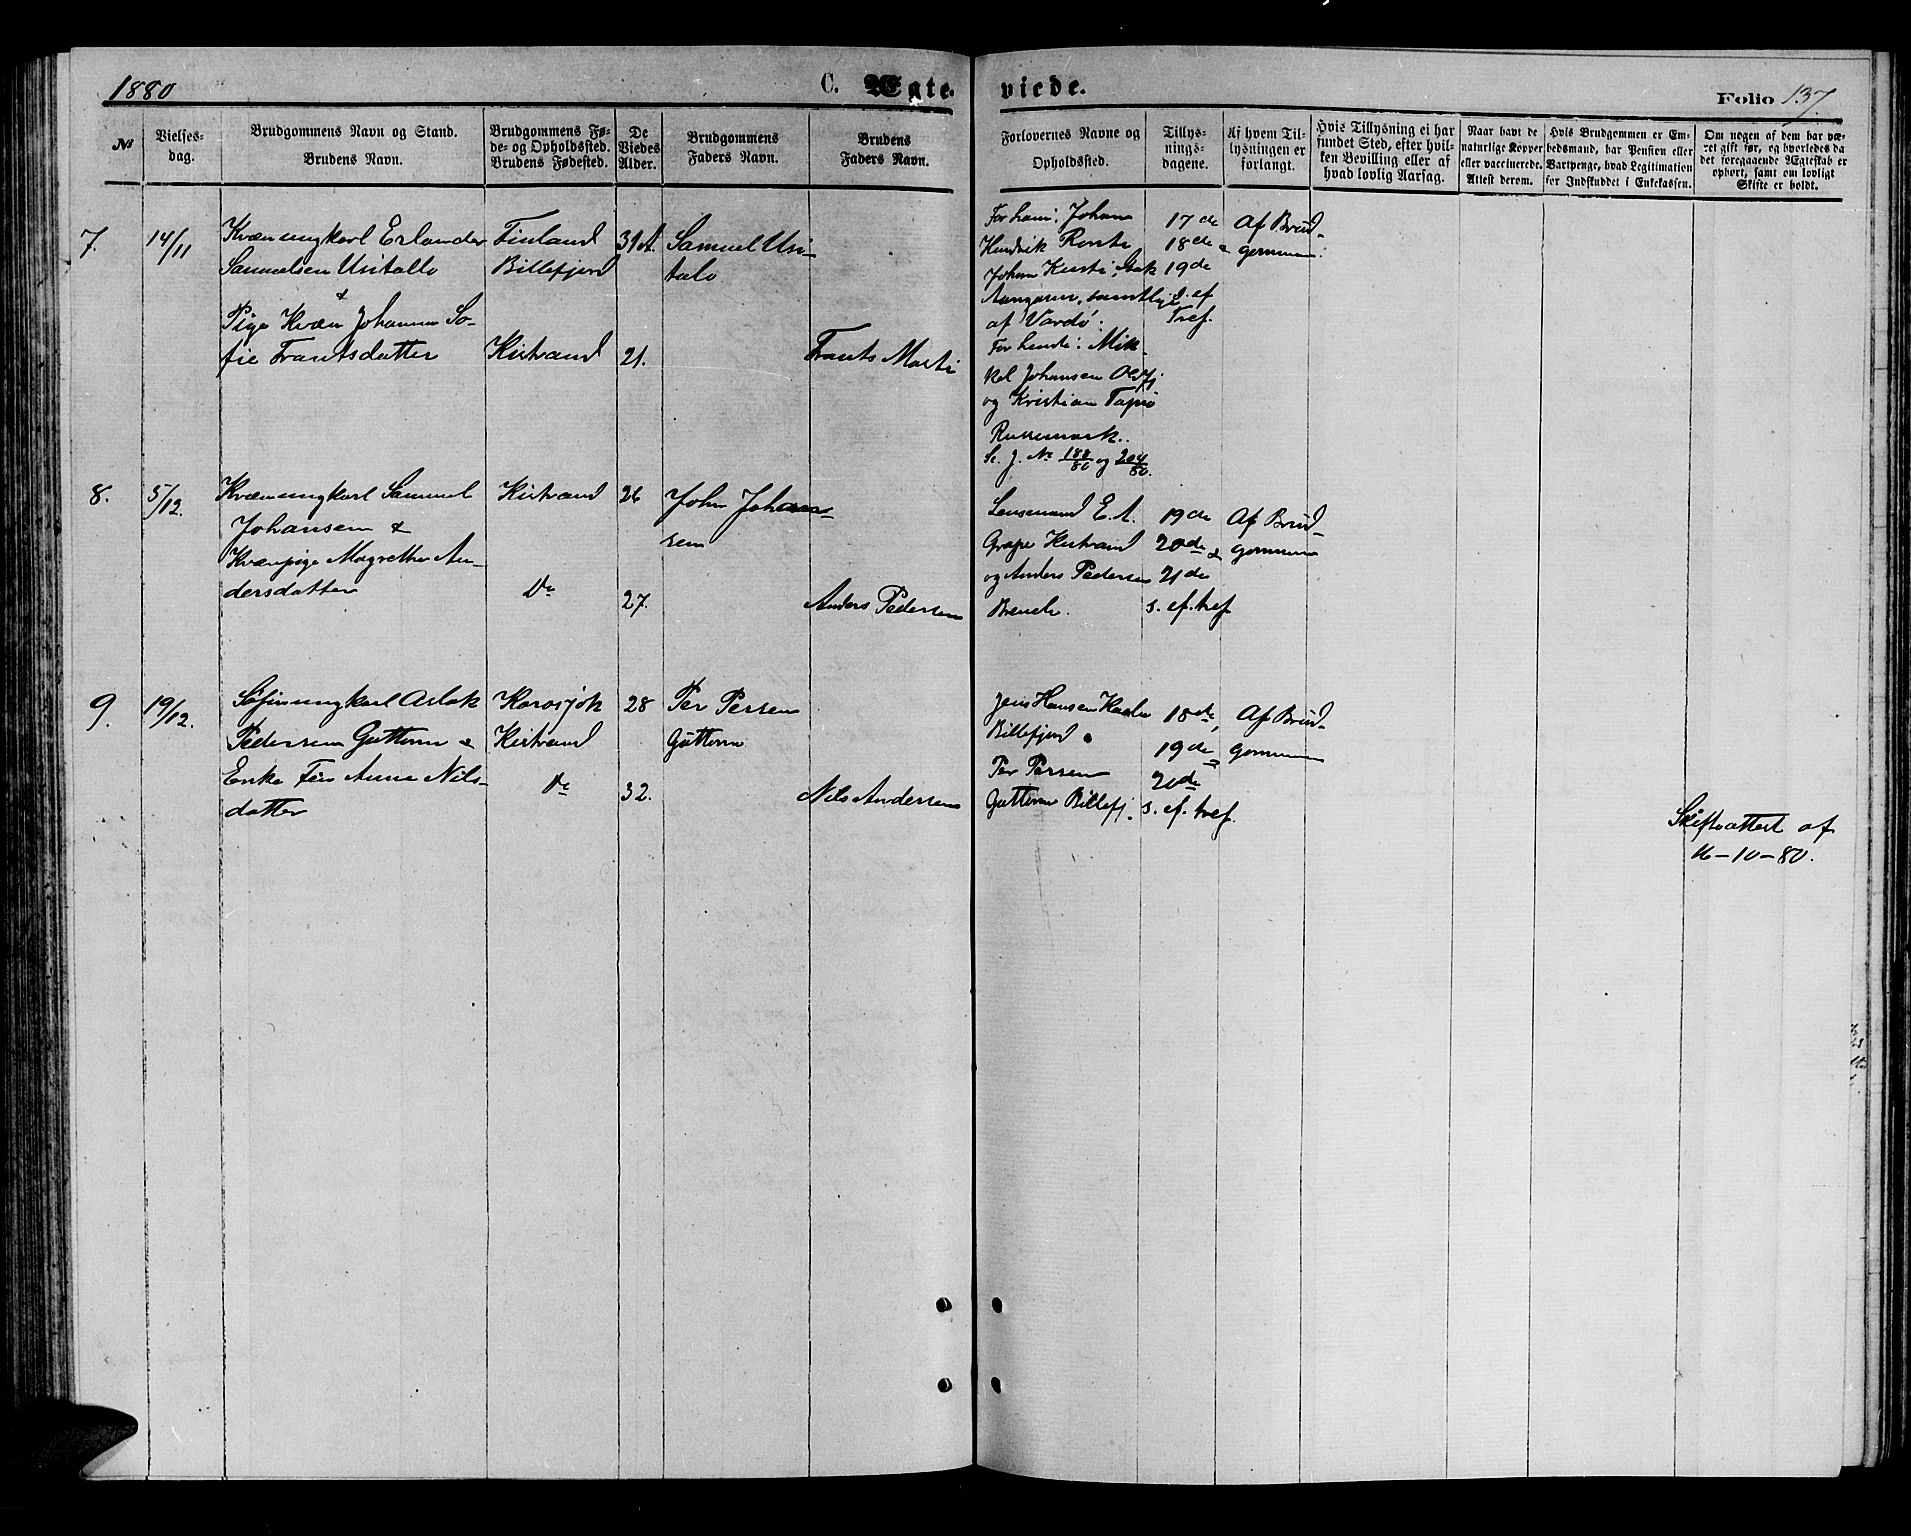 1880
C. Ægteviede.
Folio 137
№
Vielses-
dag.
Brudgommens Navn og Stand.
Brudens Navn.
Brudgommens Fø-
de- og Opholdssted.
Brudens Fødested.
De
Viedes
Alder.
Brudgommens
Faders Navn.
Brudens
Faders Navn.
Forlovernes Navne og
Opholdssted.
Tillys-
nings-
dagene.
Af hvem Til-
lysningen er
forlangt.
Hvis Tillysning ei har
fundet Sted, efter hvil-
ken Bevilling eller af
hvad lovlig Aarsag.
Naar havt de
naturlige Kopper
eller vaccinerede.
Attest derom.
Hvis Brudgommen er Em-
bedsmand, har Pension eller
Vartpenge, hvad Legitimation
for Indskuddet i Enkekassen.
Om nogen af dem har væ-
ret gift før, og hvorledes da
det foregaaende Ægteskab er
ophørt, samt om lovligt
Skifte er holdt.
7.
14/11
Kvænungkarl Erlander
Samuelsen Usitallo
&
Pige Kvæn Johanna So-
fie Frantsdatter
Finland
Billefjord
Kistrand
31 A.
21.
Samuel Usi-
talo
Frants Marti
For ham: Johan
Hendrik
Johan
samtlige
af Vardø.
For hende: Mik-
kel Johansen
og Kristian
Russemark.
Se J. № 188/80 og 204/80.
17de
18de &
19de
s. ef
Tref.
Af Brud-
gommen.
8.
5/12.
Kvænungkarl Samuel
Johansen &
Kvænpige Magrethe An-
dersdatter
Kistrand
Do
26
27.
John Johan-
sen
Anders Pedersen
Lensmand E. A.
Grape Kistrand
og Anders Pedersen
19de
20de &
21de
s. ef. tref.
Af Brud-
gommen
9.
19/12.
Søfinungkarl Aslak
Pedersen Guttorm &
Enke Fin Anne Nils-
datter
Karasjok
Kistrand
Do
28
32.
Per Persen
Guttorm
Nils Andersen
Jens Hansen
Billefjord
Per Persen
Guttorm Billefj.
18de,
19de &
20de
s. ef. tref.
Af Brud-
gommen
Skifteattest af
16-10-80.